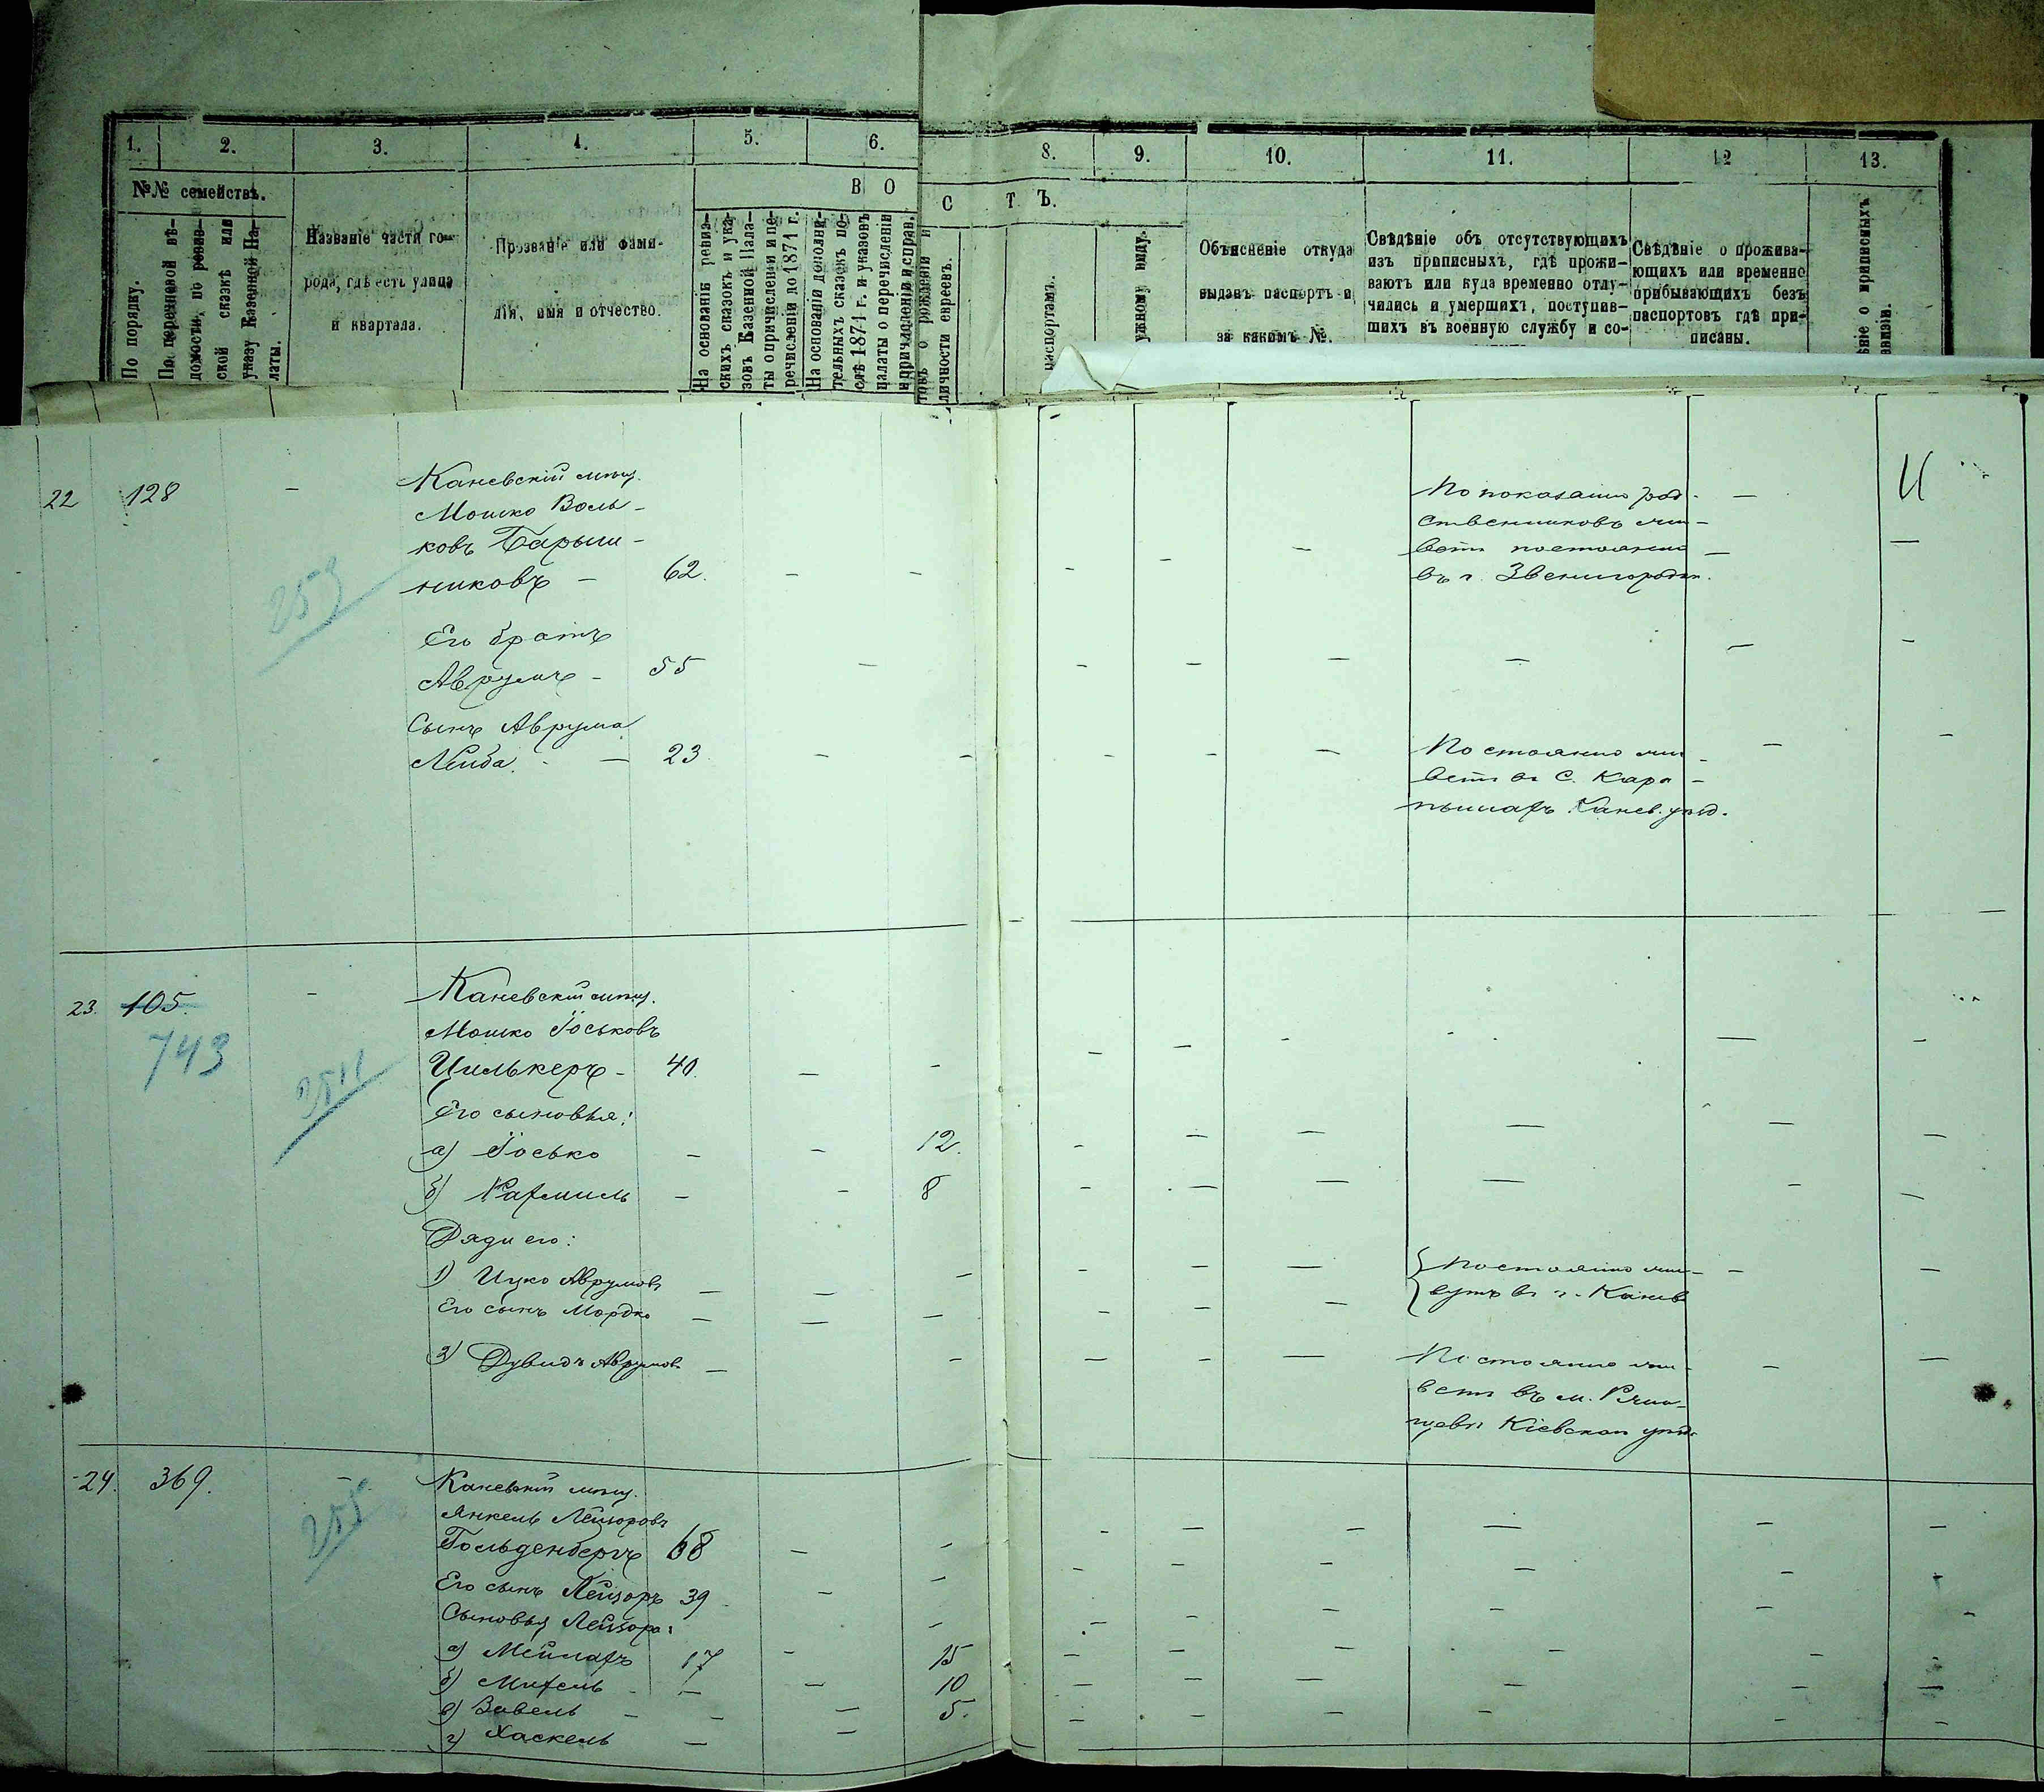 1. 2. 3. 4. 5. 6. 8. 9. 10. 11. 12 13.
№№ семействъ.
По порядку.
По перечневой вѣ-
домости, по ревиз-
ской сказкѣ или
указу Казенной Па-
латы.
Названіе части го-
рода, гдѣ есть улица
и квартала.
Прозваніе или фами-
лія, имя и отчество.
В О
С Т Ъ.
На основаніи ревиз-
скихъ сказокъ и ука-
зовъ Казенной Пала-
ты о причисленіи и пе-
речисленіи до 1871 г.
На основаніи дополни-
тельныхъ сказокъ по-
слѣ 1871 г. и указовъ
палаты о перечисленіи
и причисленіи и справ.
товъ о рожденіи и
личности евреевъ.
паспортамъ.
ужному виду.
Объясненіе откуда
выданъ паспортъ и
за какимъ №.
Свѣдѣніе объ отсутствующихъ
изъ приписныхъ, гдѣ прожи-
ваютъ или куда временно отлу-
чились и умершихъ, поступив-
шихъ въ военную службу и со-
Свѣдѣніе о прожива-
ющихъ или временно
прибывающихъ безъ
паспортовъ гдѣ при-
писаны.
ѣніе о приписныхъ
22 128 - Каневскій мѣщ.
Мошко Воль-
ковъ Барыш-
никовъ - 62. - -
253
По показанію род-
ственниковъ жи-
ветъ постоянно
въ г. Звенигородк.
Его братъ
Аврумъ - 55 -
Сынъ Аврума
Лейба. - 23 - -
Постоянно жи-
ветъ въ с. Кара-
пышахъ Канев. уѣзд.
23. 105. - Каневскій мѣщ.
743
Мошко Іоськовъ
Цилькеръ - 40. - -
Его сыновья:
а) Іосько - - 12.
б) Рахмиль - - 8
Дяди его:
1) Ицко Аврумовъ - - -
Его сынъ Мордко - - -
Постоянно жи-
вутъ въ г. Каневѣ
2) Дувидъ Аврумовъ - -
Постоянно жи-
ветъ въ м. Ржи-
щевѣ Кіевскаго уѣзд.
24. 369. - Каневскій мѣщ.
255
Янкель Лейзоровъ
Гольденбергъ 68 - -
Его сынъ Лейзоръ 39 - -
Сыновья Лейзора:
а) Мейлахъ 17 - 15
б) Михель - - 10
в) Вавель - - - 5.
г) Хаскель - -